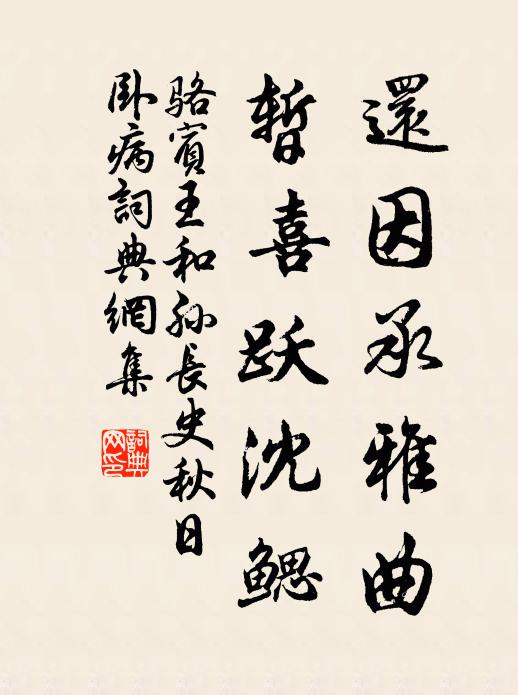 還因承雅曲
暫喜跃沈鳃
骆賓王和孫長史秋日
卧病詞典網集
詞典网印